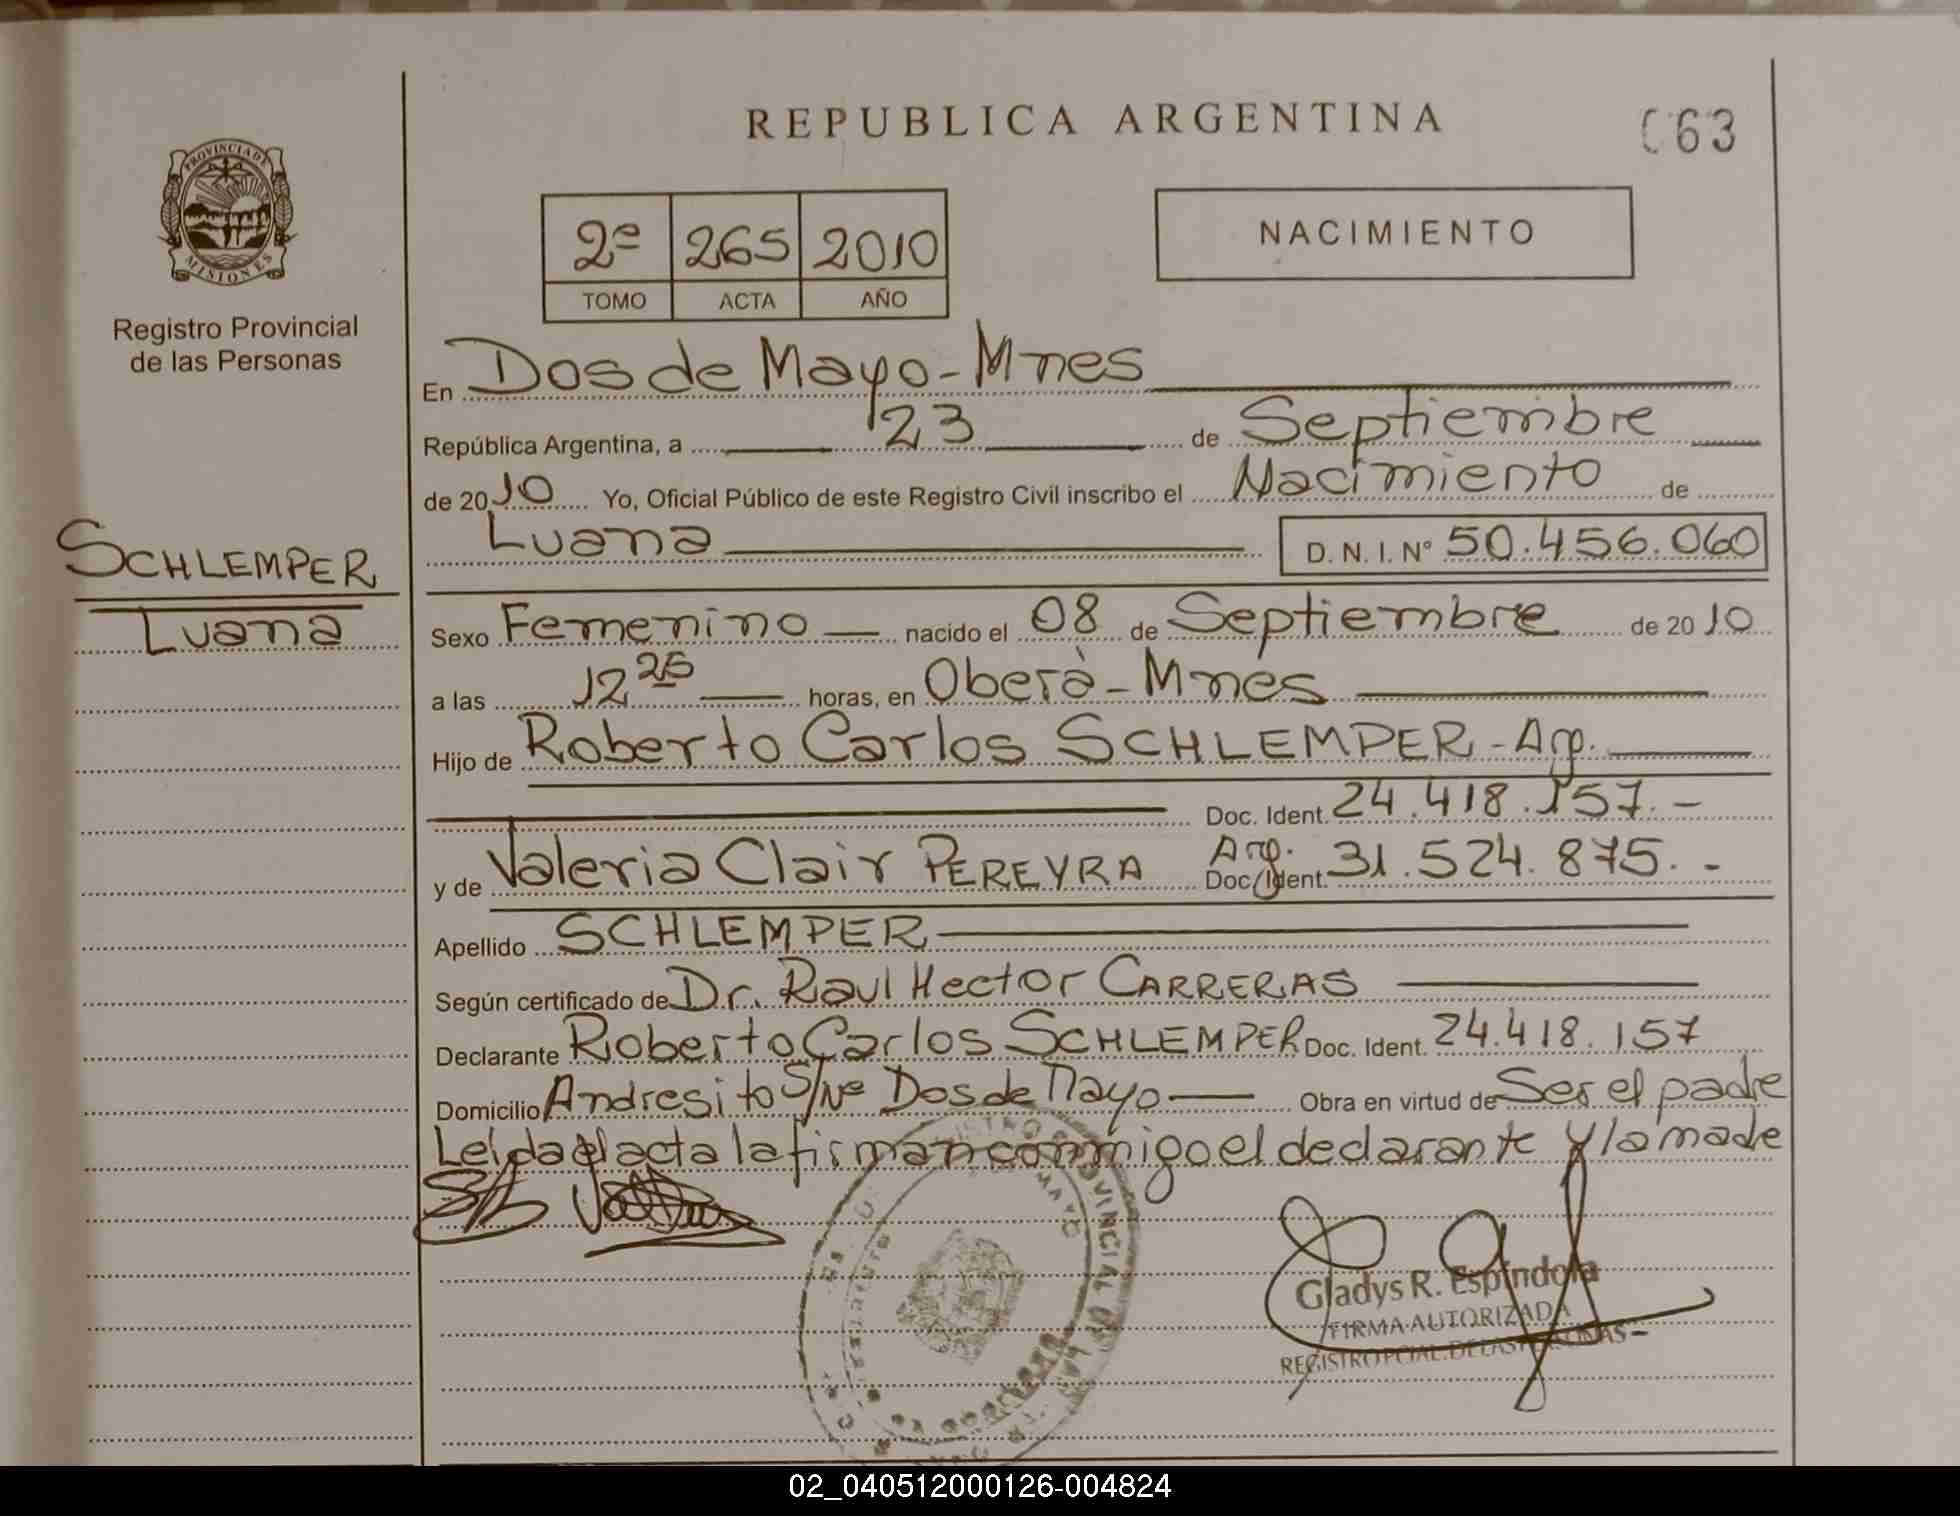 REPUBLICA ARGENTINA
063
PROVINCIA DE
MISIONES
Registro Provincial
de las Personas
2º 265 2010
TOMO ACTA AÑO
NACIMIENTO
En Dos de Mayo - Mnes
República Argentina, a 23 de Septiembre
de 2010 Yo, Oficial Público de este Registro Civil inscribo el Nacimiento de
Luana D. N. I. Nº 50.456.060
SCHLEMPER
Luana
Sexo Femenino nacido el 08 de Septiembre de 2010
a las 12 25 horas, en Oberá - Mnes
Hijo de Roberto Carlos SCHLEMPER - Arg.
Doc. Ident. 24.418.157.-
y de Valeria Clair PEREYRA Arg. Doc. Ident. 31.524.875.-
Apellido SCHLEMPER
Según certificado de Dr. Raul Hector CARRERAS
Declarante Roberto Carlos SCHLEMPER Doc. Ident. 24.418.157
Domicilio Andresito S/Nº Dos de Mayo Obra en virtud de Ser el padre
Leída el acta la firman conmigo el declarante y la madre
Gladys R. Espíndola
FIRMA AUTORIZADA
REGISTRO PCIAL. DE LAS PERSONAS
02_040512000126-004824